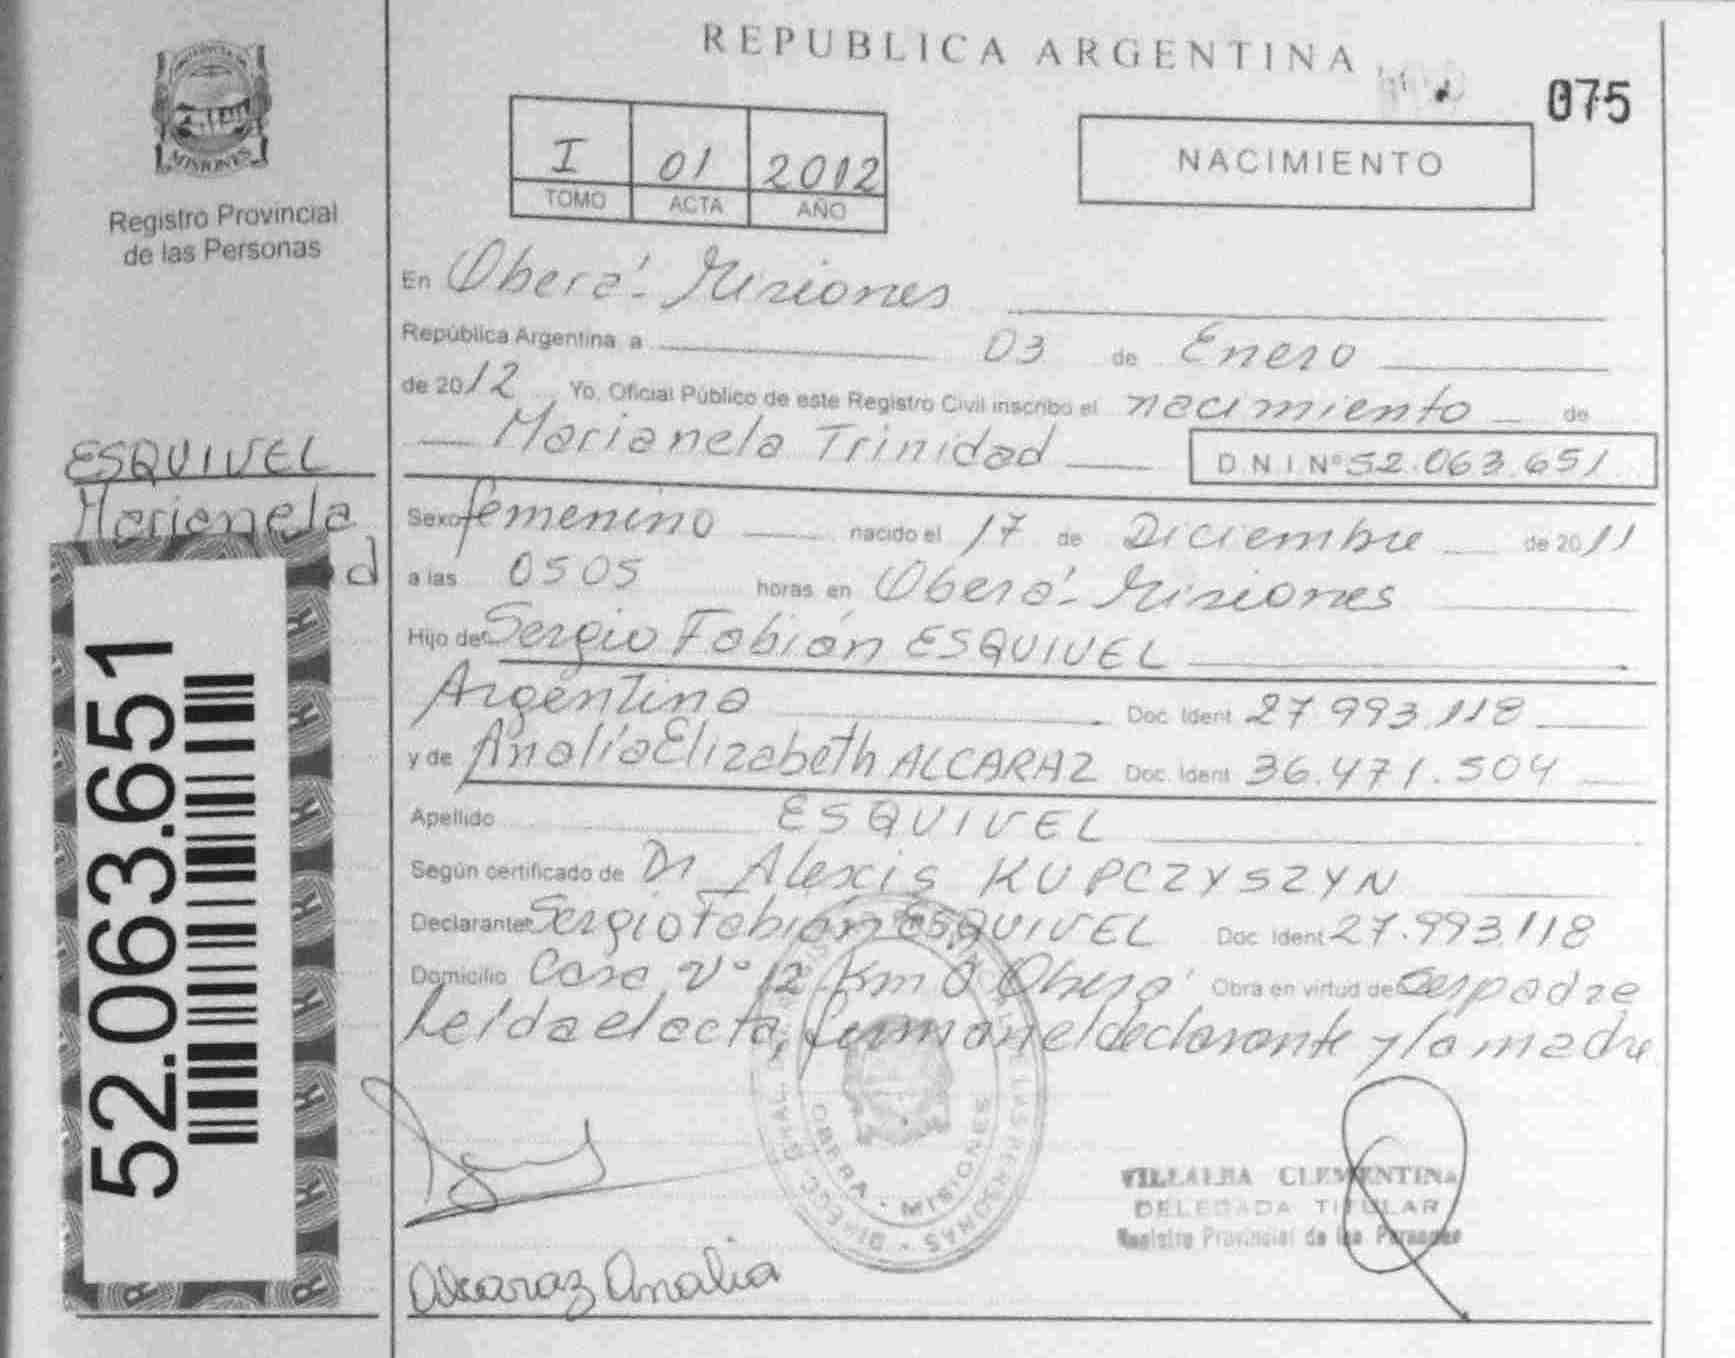 REPUBLICA ARGENTINA
075
MISIONES
Registro Provincial
de las Personas
I 01 2012
TOMO ACTA AÑO
NACIMIENTO
En Oberá - Misiones
República Argentina a 03 de Enero
de 2012 Yo, Oficial Público de este Registro Civil inscribo el nacimiento de
Marianela Trinidad D.N.I. Nº 52.063.651
ESQUIVEL
Marianela
d
52.063.651
Sexo femenino nacido el 17 de Diciembre de 2011
a las 0505 horas en Oberá - Misiones
Hijo de Sergio Fabián ESQUIVEL
Argentina Doc. Ident. 27.993.118
y de Analía Elizabeth ALCARAZ Doc. Ident. 36.471.504
Apellido ESQUIVEL
Según certificado de Dr Alexis KUPCZYSZYN
Declarante Sergio Fabián ESQUIVEL Doc. Ident. 27.993.118
Domicilio Casa Nº 12 Km 0 Oberá Obra en virtud de ser padre
Leída el acta, firman el declarante y la madre
OBERA - MISIONES
LAS PERSONAS
VILLALBA CLEMENTINA
DELEGADA TITULAR
Registro Provincial de las Personas
Alcaraz Analia